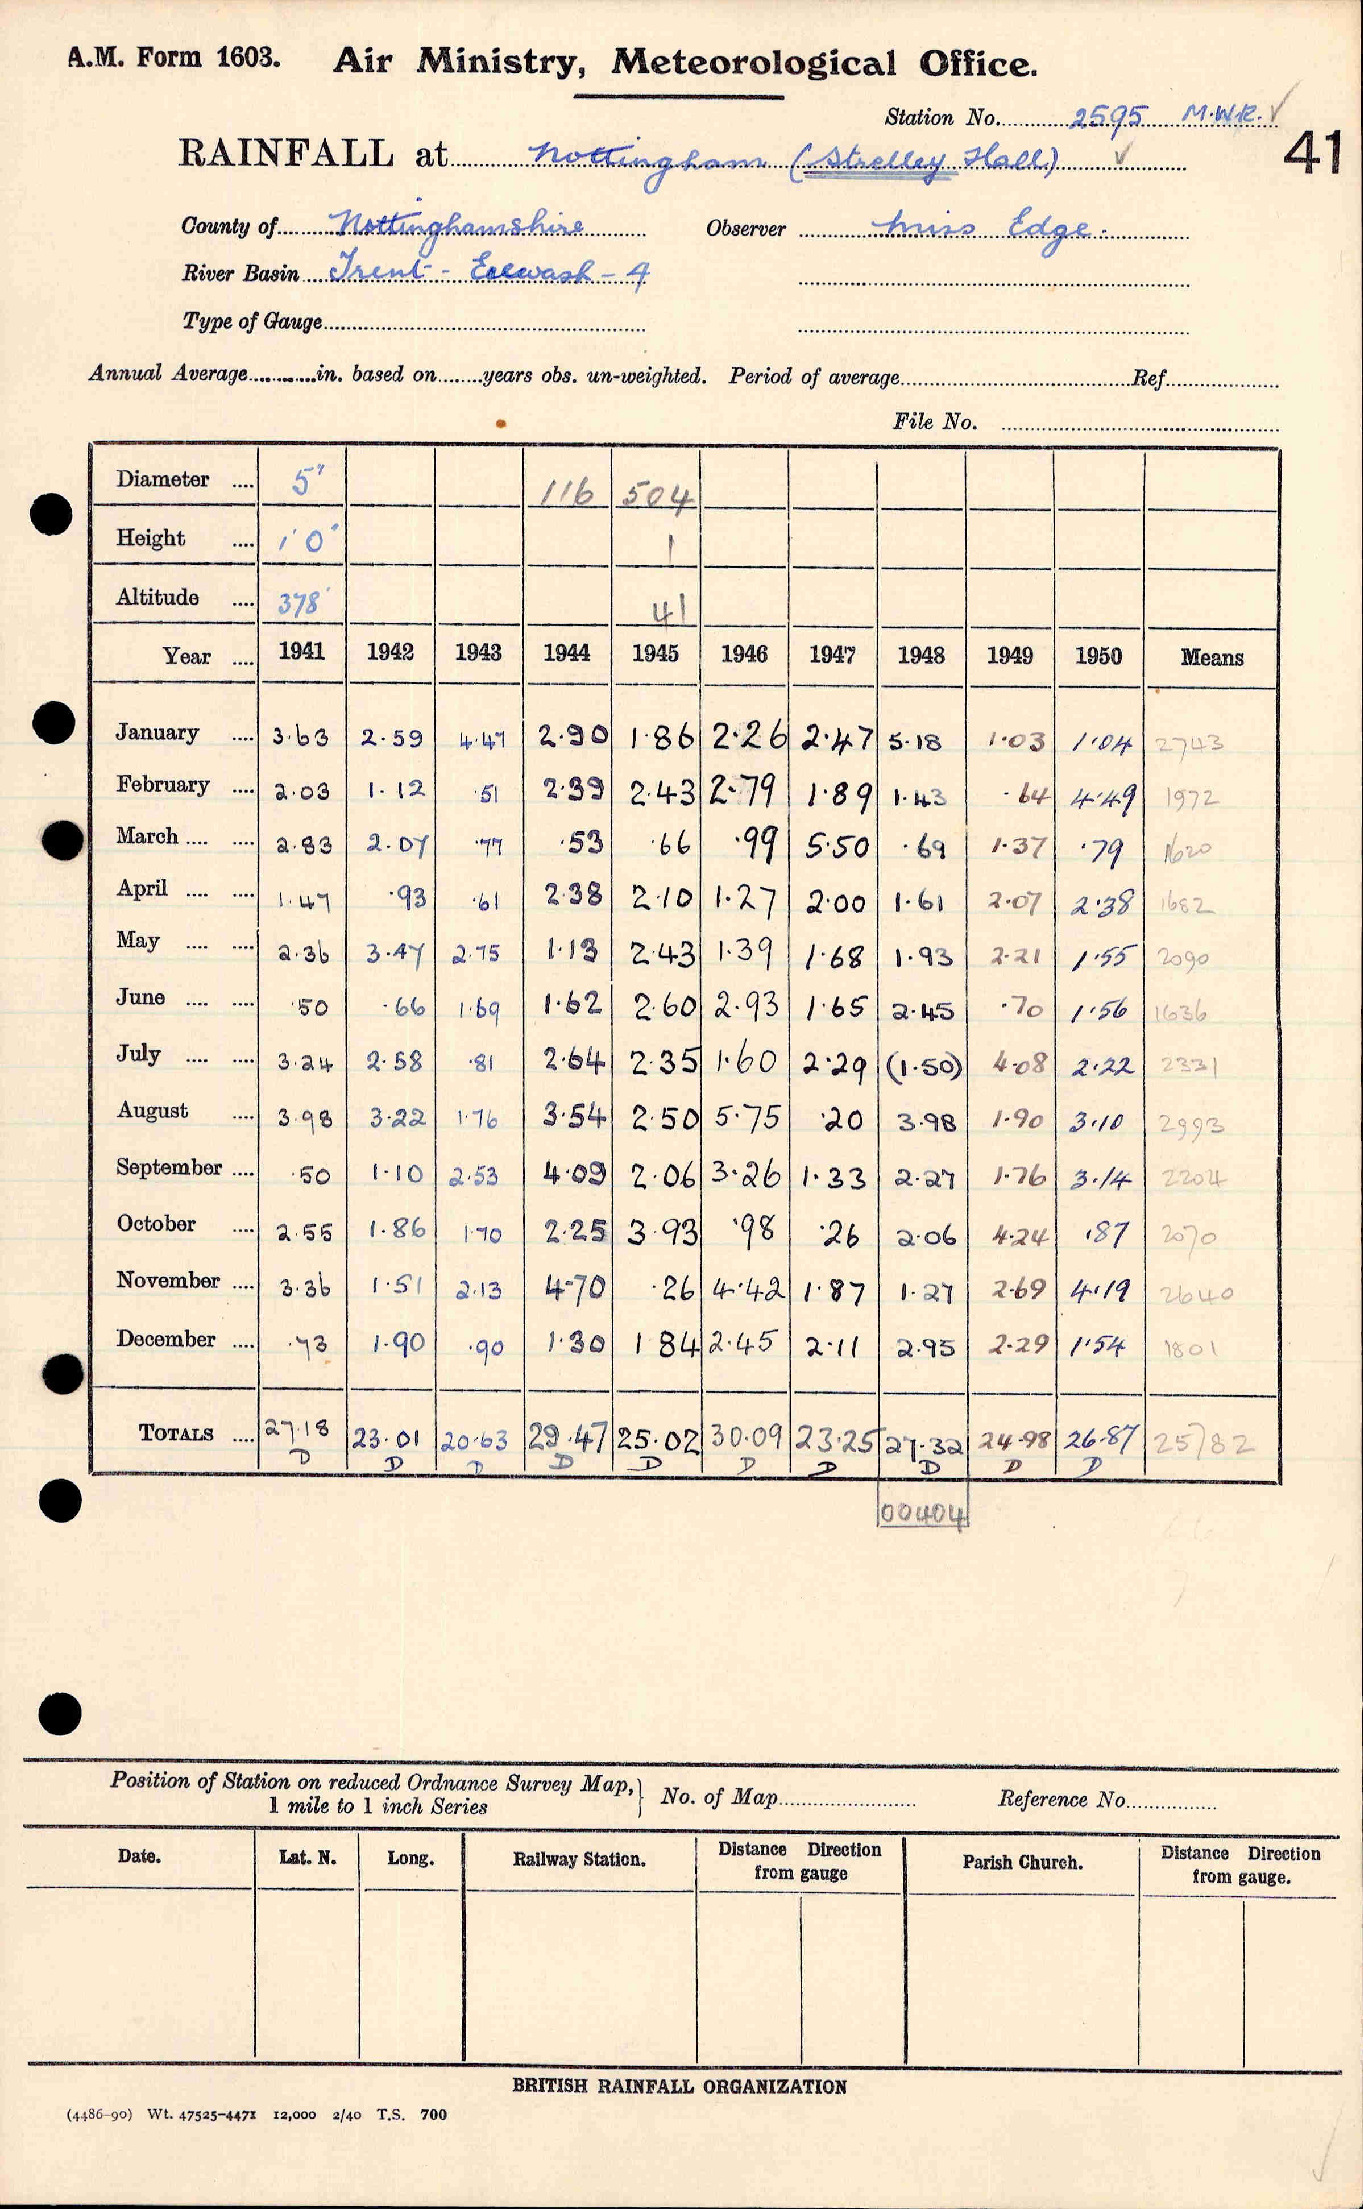 A.M. Form 1603. Air Ministry, Meteorological Office.
Station No. 2595 M.W.R. ✓
RAINFALL at Nottingham (Strelley Hall) ✓ 41
County of Nottinghamshire Observer Miss Edge.
River Basin Trent - Erewash - 4
Type of Gauge
Annual Average in. based on years obs. un-weighted. Period of average Ref.
File No.
Diameter 5" 116 504
Height 1' 0" 1
Altitude 378' 41
Year 1941 1942 1943 1944 1945 1946 1947 1948 1949 1950 Means
January 3.63 2.59 4.47 2.90 1.86 2.26 2.47 5.18 1.03 1.04 2743
February 2.03 1.12 .51 2.39 2.43 2.79 1.89 1.43 .64 4.49 1972
March 2.83 2.07 .77 .53 .66 .99 5.50 .69 1.37 .79 1620
April 1.47 .93 .61 2.38 2.10 1.27 2.00 1.61 2.07 2.38 1682
May 2.36 3.47 2.75 1.13 2.43 1.39 1.68 1.93 2.21 1.55 2090
June .50 .66 1.69 1.62 2.60 2.93 1.65 2.45 .70 1.56 1636
July 3.24 2.58 .81 2.64 2.35 1.60 2.29 (1.50) 4.08 2.22 2331
August 3.98 3.22 1.76 3.54 2.50 5.75 .20 3.98 1.90 3.10 2993
September .50 1.10 2.53 4.09 2.06 3.26 1.33 2.27 1.76 3.14 2204
October 2.55 1.86 1.70 2.25 3.93 .98 .26 2.06 4.24 .87 2070
November 3.36 1.51 2.13 4.70 .26 4.42 1.87 1.27 2.69 4.19 2640
December .73 1.90 .90 1.30 1 84 2.45 2.11 2.95 2.29 1.54 1801
TOTALS 27.18 23.01 20.63 29.47 25.02 30.09 23.25 27.32 24.98 26.87 25782
D D D D D D D D D D
00404
Position of Station on reduced Ordnance Survey Map,} No. of Map Reference No.
1 mile to 1 inch Series
Date. Lat. N. Long. Railway Station. Distance Direction from gauge Parish Church. Distance Direction from gauge.
BRITISH RAINFALL ORGANIZATION
(4486-90) Wt. 47525-4471 12,000 2/40 T.S. 700